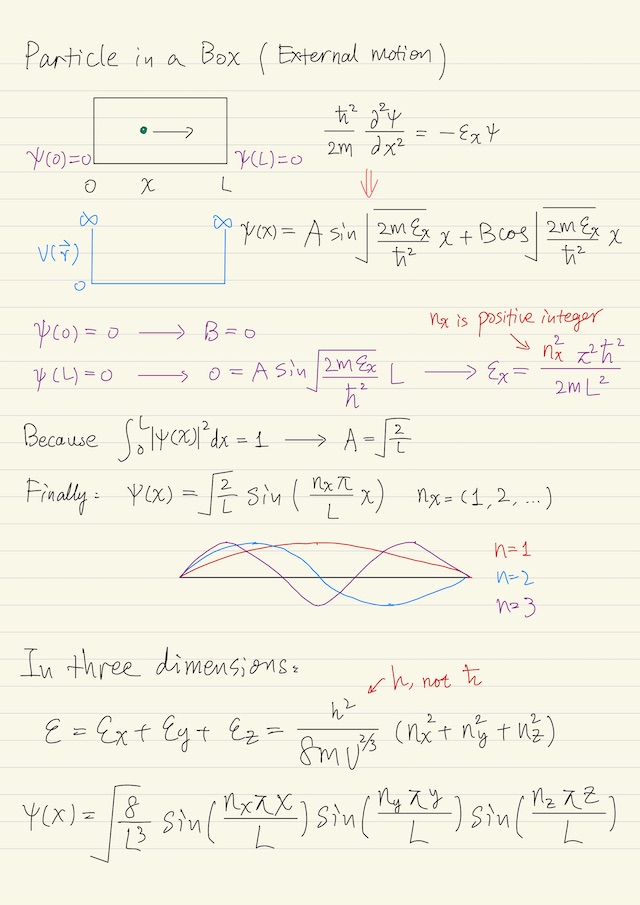 Particle in a Box (External motion)
ψ(0)=0 ψ(L)=0
0 x L
ħ²/2m ∂²ψ/∂x² = -Ɛxψ
⇓
∞ ∞
V(r⃗)
0
ψ(x) = A sin √(2mƐx/ħ²) x + B cos √(2mƐx/ħ²) x
nx is positive integer
ψ(0) = 0 → B = 0
ψ(L) = 0 → 0 = A sin √(2mƐx/ħ²) L → Ɛx = nx² π²ħ²/2mL²
Because ∫₀ᴸ|ψ(x)|²dx = 1 → A = √(2/L)
Finally: ψ(x) = √(2/L) sin (nxπ/L x) nx = (1, 2, ...)
n=1
n=2
n=3
In three dimensions:
h, not ħ
Ɛ = Ɛx + Ɛy + Ɛz = h²/8mV^(2/3) (nx² + ny² + nz²)
ψ(x) = √(8/L³) sin(nxπx/L) sin(nyπy/L) sin(nzπz/L)